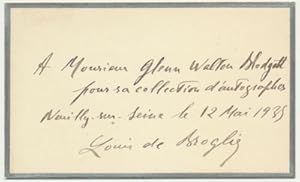 A Monsieur Glenn Walton Blodgett
pour sa collection d'autographes
Neuilly-sur-Seine le 12 Mai 1935
Louis de Broglie